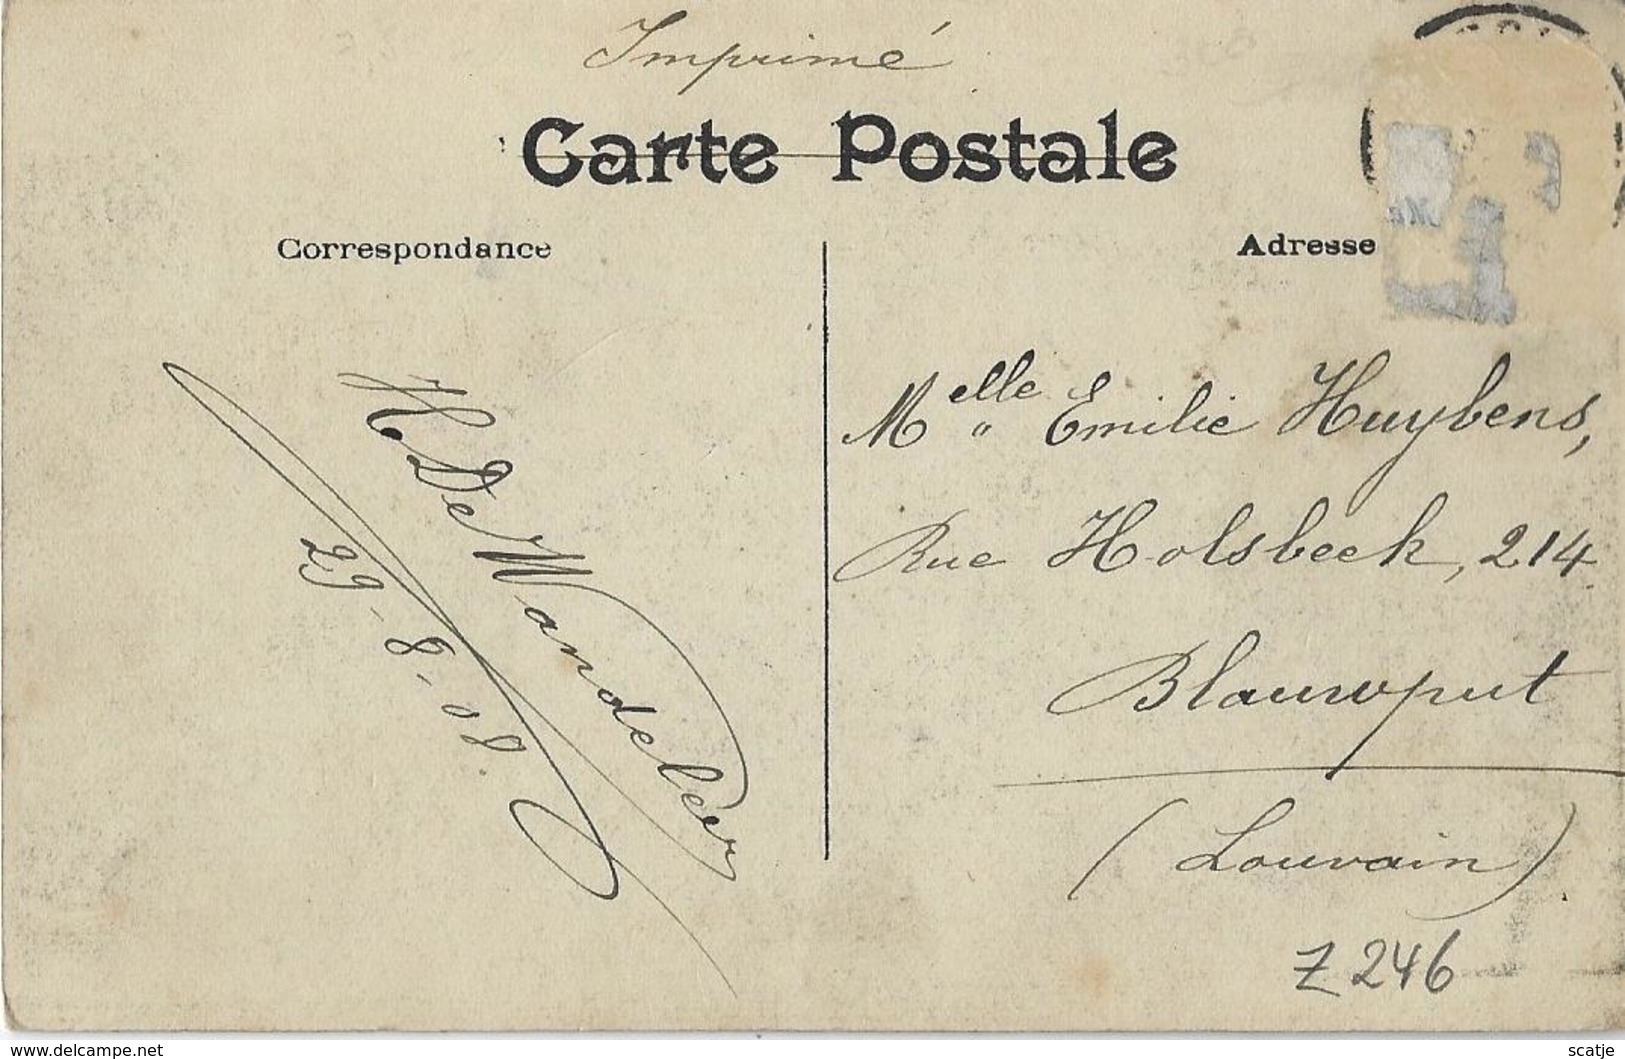 Imprimé
Carte Postale
Correspondance
Adresse
H. De Wandeleer
29-8-08
Melle Emilie Huybens,
Rue Holsbeek, 214
Blauwput
(Louvain)
Z 246
www.delcampe.net
scatje